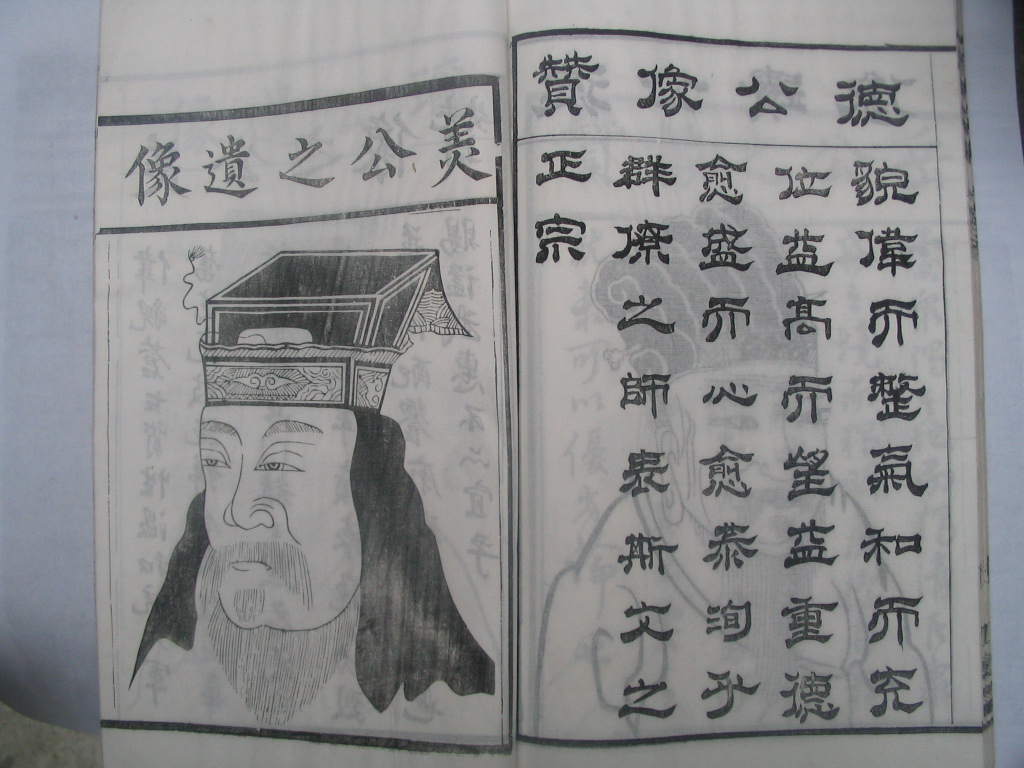 德公像贊
貌偉而整氣和而充
位益高而望益重德
愈盛而心愈恭洵乎
群僚之師表斯文之
正宗
美公之遺像